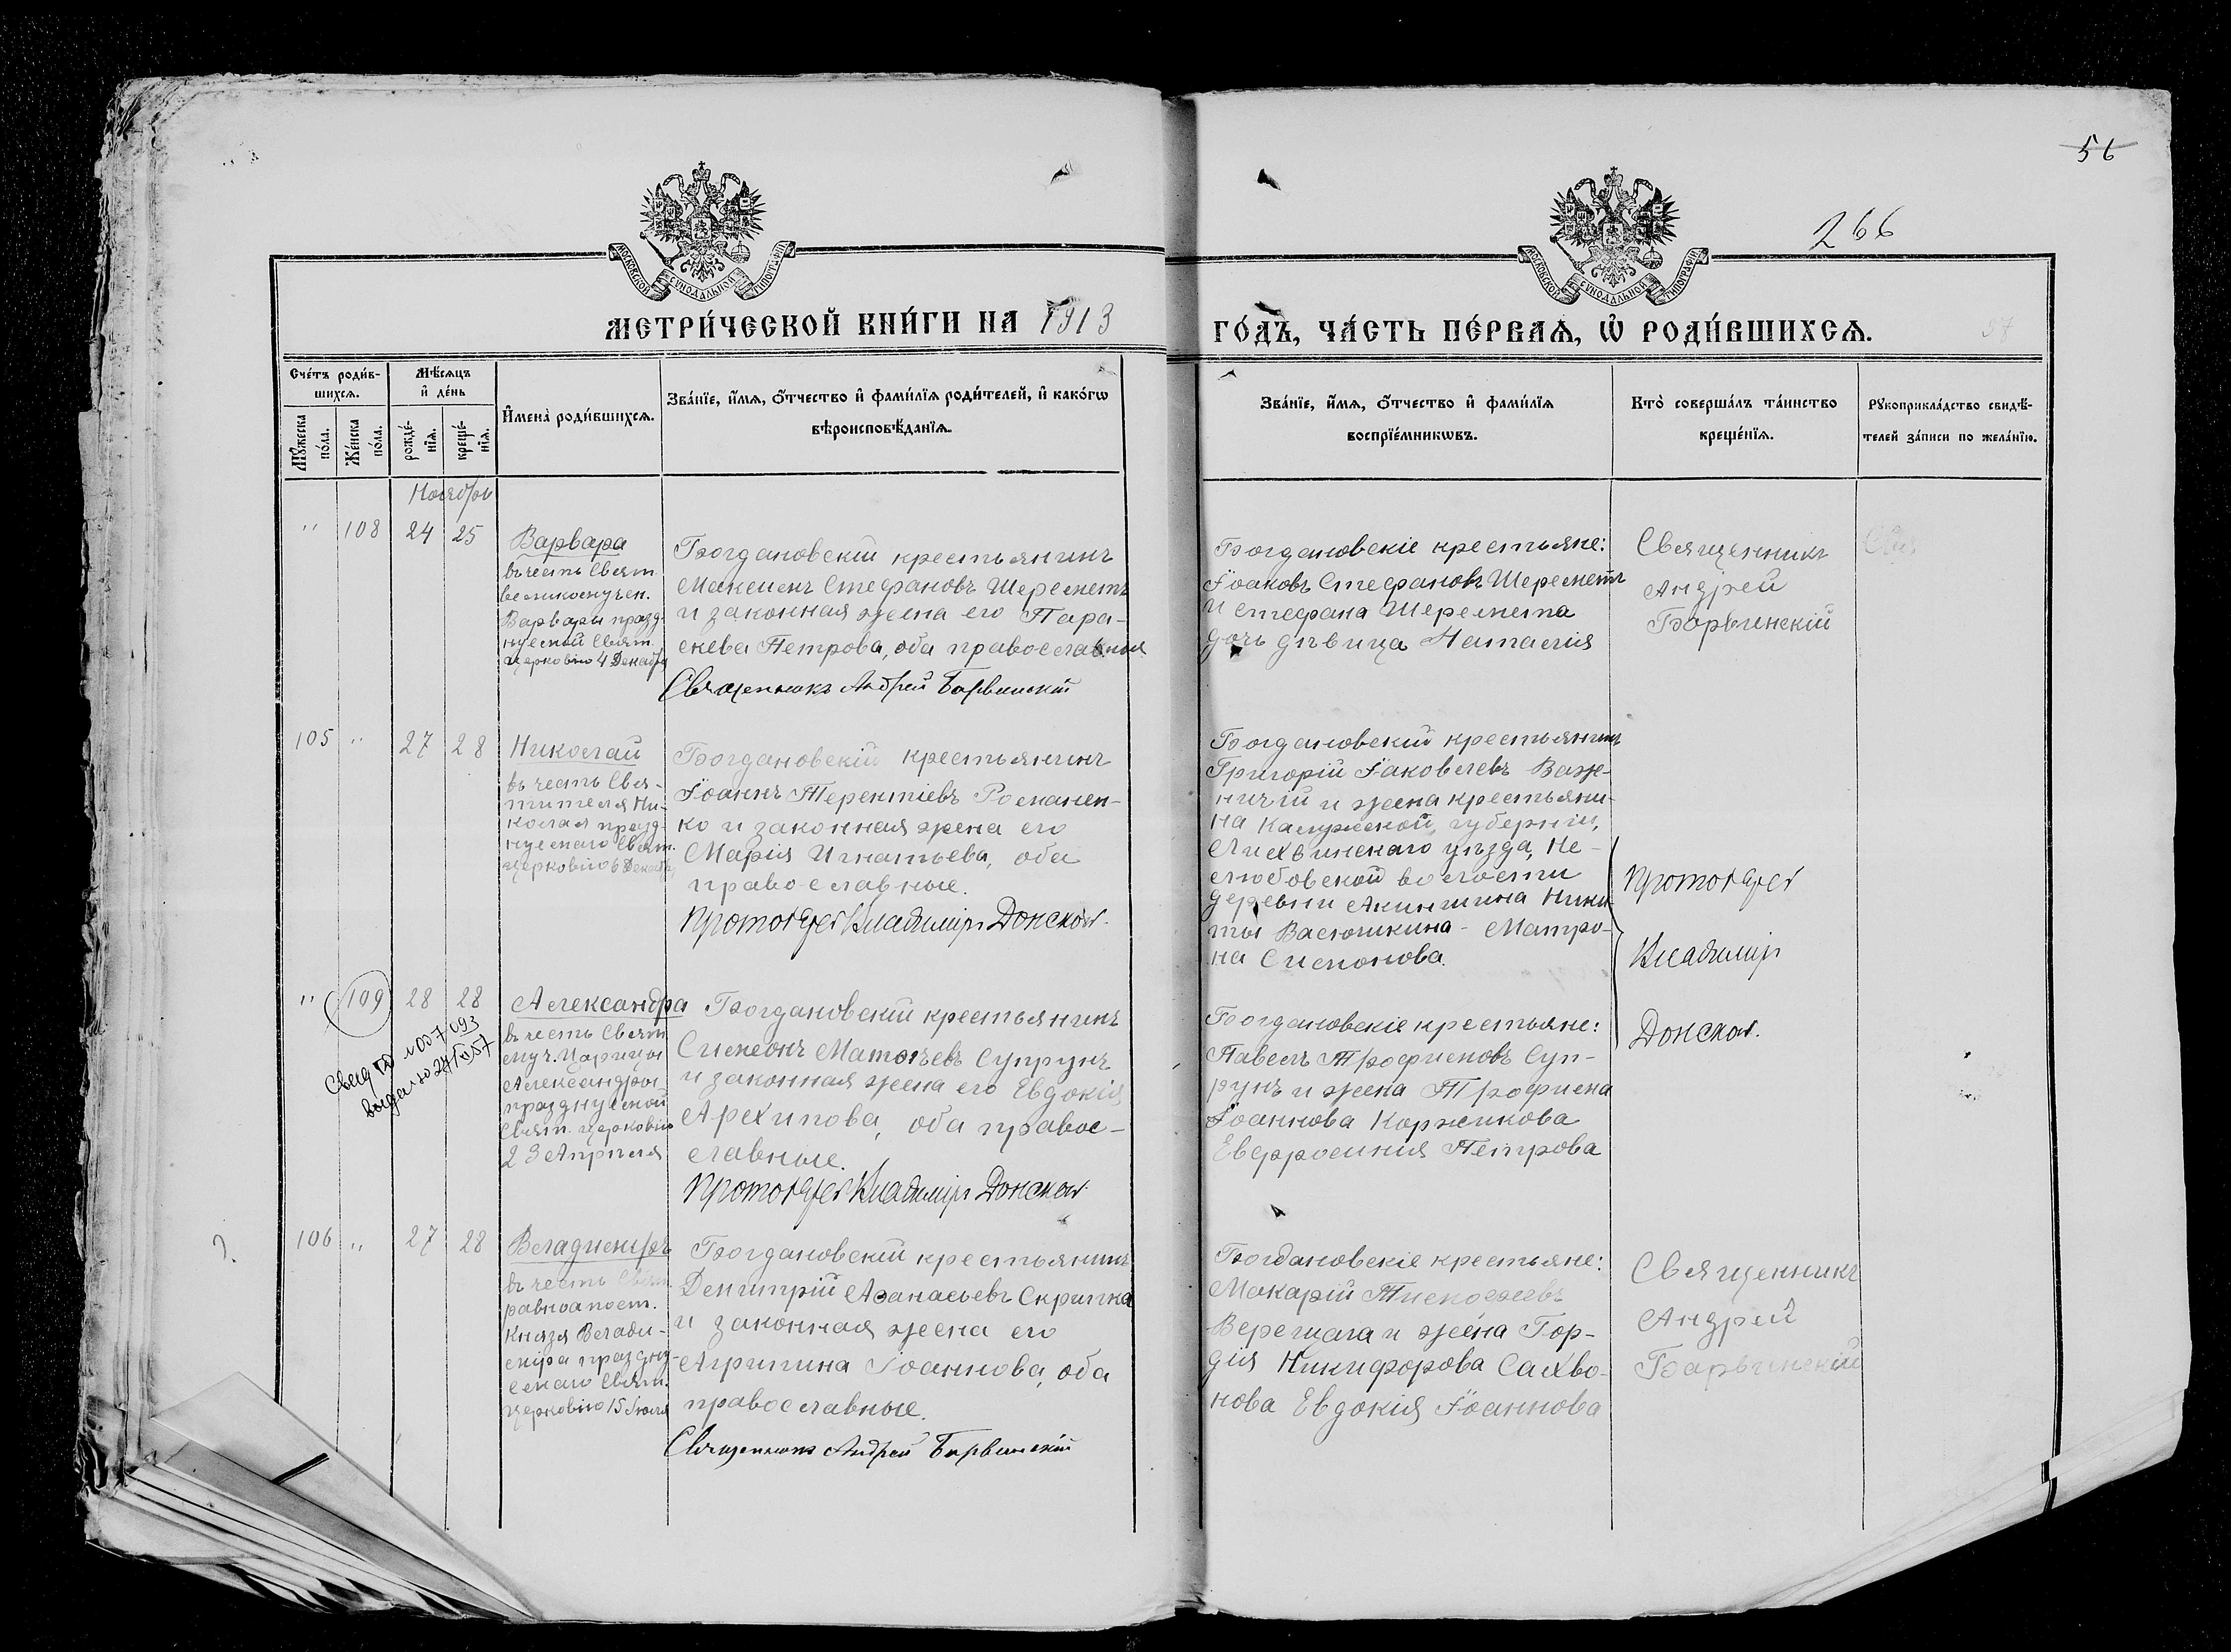 56
266
МОСКОВСКОЙ СѴНОДАЛЬНОЙ ТИПОГРАФІИ
МОСКОВСКОЙ СѴНОДАЛЬНОЙ ТИПОГРАФІИ
МЕТРИ́ЧЕСКОЙ КНИ́ГИ НА 1913
ГО́ДЪ, ЧА́СТЬ ПЕ́РВАѦ, Ѡ҆ РОДИ́ВШИХСѦ.
57
Сче́тъ роди́в-
шихсѧ.
Мѣ́сѧцъ
и҆ де́нь
Мꙋ́жеска
по́ла.
Же́нска
по́ла.
рожде́-
нїѧ.
креще́-
нїѧ.
И҆мена̀ роди́вшихсѧ.
Зва́нїе, и҆́мѧ, о҆́тчество и҆ фами́лїѧ роди́телей, и҆ како́гѡ
вѣроисповѣ́данїѧ.
Зва́нїе, и҆́мѧ, о҆́тчество и҆ фами́лїѧ
воспрїе́мникѡвъ.
Кто̀ соверша́лъ та́инство
креще́нїѧ.
Рꙋкоприкла́дство свидѣ́-
телей за́писи по жела́нїю.
Ноябрь
" 108 24 25
Варвара
въ честь Свят.
великомучен.
Варвары празд-
нуемой Свят.
церковію 4 Декабря
Богдановскій крестьянинъ
Максимъ Стефановъ Шереметъ
и законная жена его Пара-
скева Петрова, оба православныя
Священникъ Андрей Барвинскій
Богдановскіе крестьяне:
Іоаковъ Стефановъ Шереметъ
и Стефана Шеремета
дочь дѣвица Наталія
Священникъ
Андрей
Барвинскій
105 " 27 28
Николай
въ честь Свя-
тителя Ни-
колая празд-
нуемаго Свят.
церковію 6 Декабря
Богдановскій крестьянинъ
Іоаннъ Терентіевъ Романен-
ко и законная жена его
Марія Игнатьева, оба
православные.
Протоіерей Владиміръ Донской.
Богдановскій крестьянинъ
Григорій Іаковлевъ Важ-
ничій и жена крестьяни-
на Калужской, губерніи,
Лихвинскаго уѣзда, Не-
любовской волости
деревни Акиншина Ники-
ты Васюшкина - Матро-
на Симонова.
Протоіерей
Владиміръ
Донской.
" 109 28 28
Александра
въ честь Свят.
муч. Царицы
Александры
празднуемой
Свят. церковію
23 Апрѣля
Богдановскій крестьянинъ
Симеонъ Матѳѣевъ Супрунъ
и законная жена его Евдокія
Архипова, оба правос-
лавные.
Протоіерей Владиміръ Донской
Богдановскіе крестьяне:
Павелъ Трофимовъ Суп-
рунъ и жена Трофима
Іоаннова Коржикова
Евфросинія Петрова
106 " 27 28
Владиміръ
въ честь Свят.
равноапост.
Князя Влади-
міра праздну-
емаго Свят.
церковію 15 Іюля
Богдановскій крестьянинъ
Димитрій Аѳанасьевъ Скрипка
и законная жена его
Агрипина Іоаннова, оба
православные.
Священникъ Андрей Барвинскій
Богдановскіе крестьяне:
Макарій Тимофеевъ
Верещага и жена Гор-
дія Никифорова Сахво-
нова Евдокія Іоаннова
Священникъ
Андрей
Барвинскій